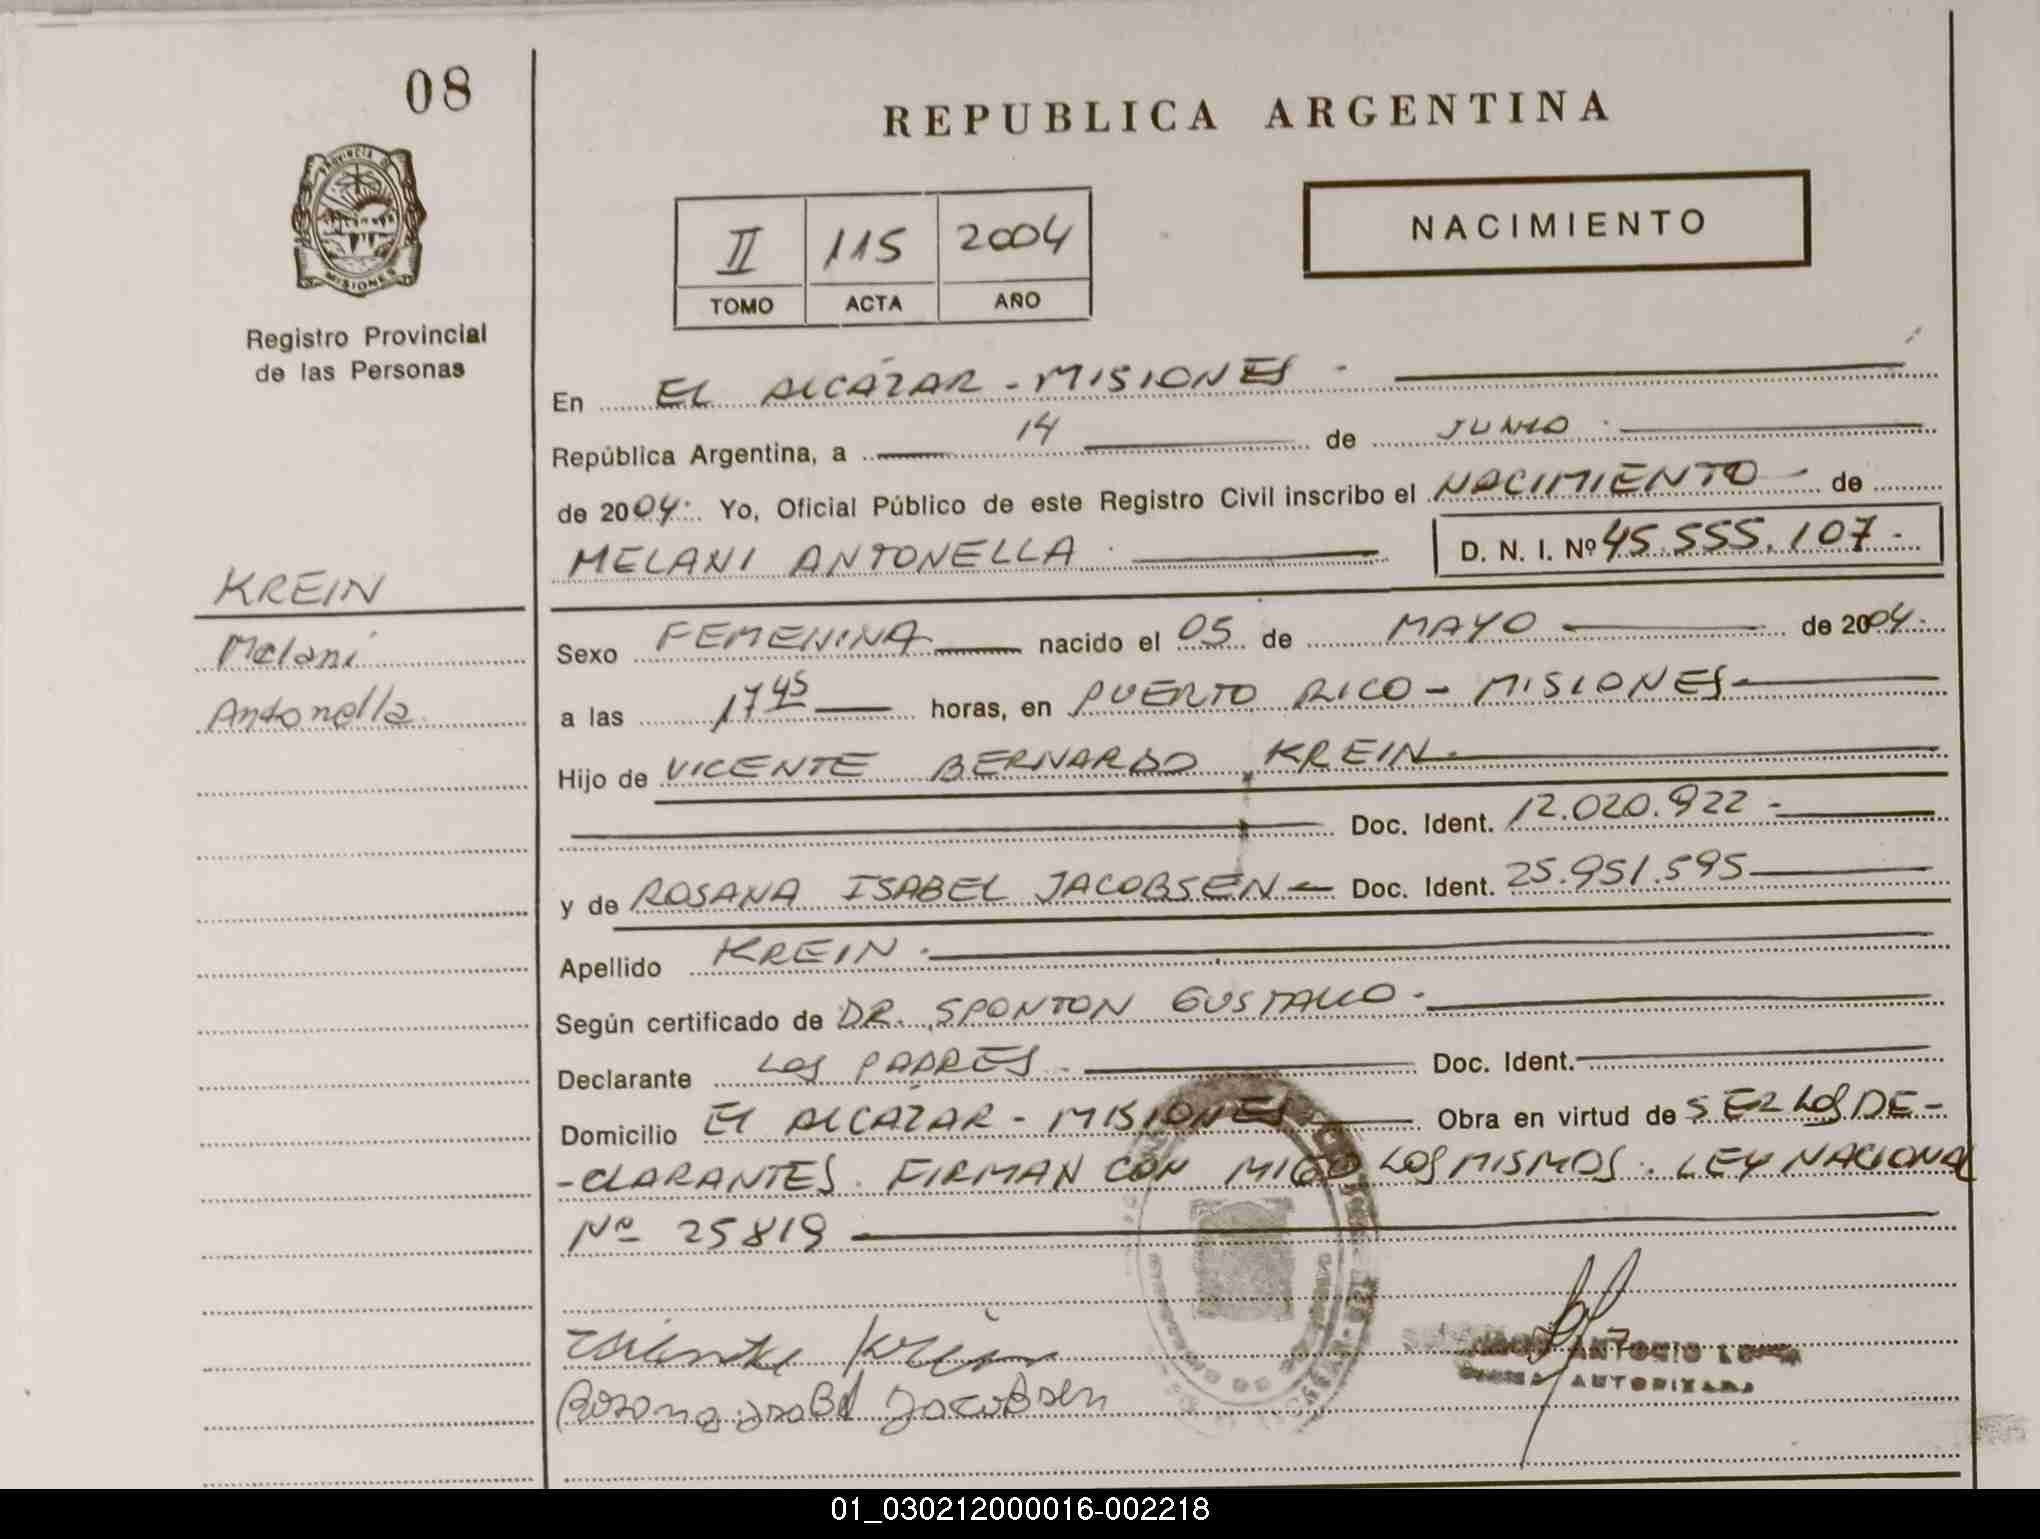 08
REPUBLICA ARGENTINA
PROVINCIA DE
MISIONES
Registro Provincial
de las Personas
II 115 2004
TOMO ACTA AÑO
NACIMIENTO
En EL ALCÁZAR - MISIONES -
República Argentina, a 14 de JUNIO
de 2004. Yo, Oficial Público de este Registro Civil inscribo el NACIMIENTO - de
MELANI ANTONELLA D. N. I. Nº 45.555.107-
KREIN
Melani
Antonella
Sexo FEMENINA nacido el 05 de MAYO de 2004.
a las 17 45 horas, en PUERTO RICO - MISIONES
Hijo de VICENTE BERNARDO KREIN.
Doc. Ident. 12.020.922 -
y de ROSANA ISABEL JACOBSEN - Doc. Ident. 25.951.595
Apellido KREIN.
Según certificado de DR. SPONTON GUSTAVO.
Declarante LOS PADRES Doc. Ident.
Domicilio El ALCÁZAR - MISIONES Obra en virtud de SER LOS DE-
-CLARANTES. FIRMAN CON MIGO LOS MISMOS. LEY NACIONAL
Nº 25819
Vicente Krein
Rosana Isabel Jacobsen
ANTONIO
AUTORIZADA
01_030212000016-002218